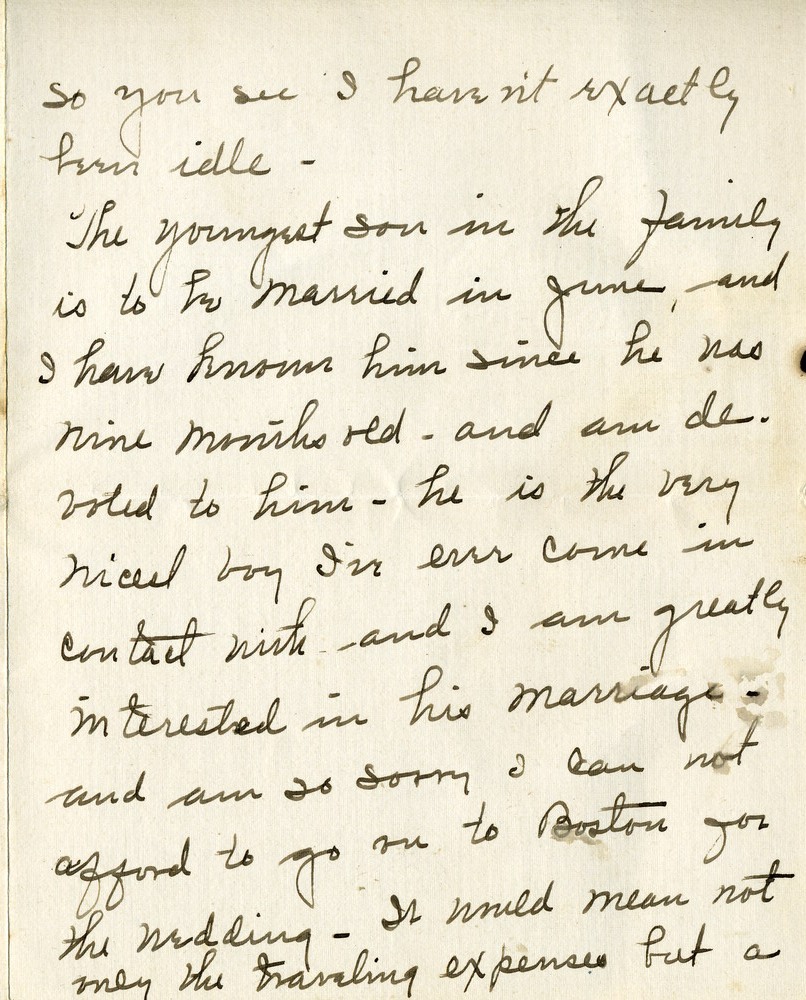 so you see I haven't exactly
been idle -
The youngest son in the family
is to be married in June, and
I have known him since he was
nine months old - and am de-
voted to him - he is the very
nicest boy I've ever come in
contact with - and I am greatly
interested in his marriage -
and am so sorry I can not
afford to go on to Boston for
the wedding - It would mean not
only the traveling expenses but a